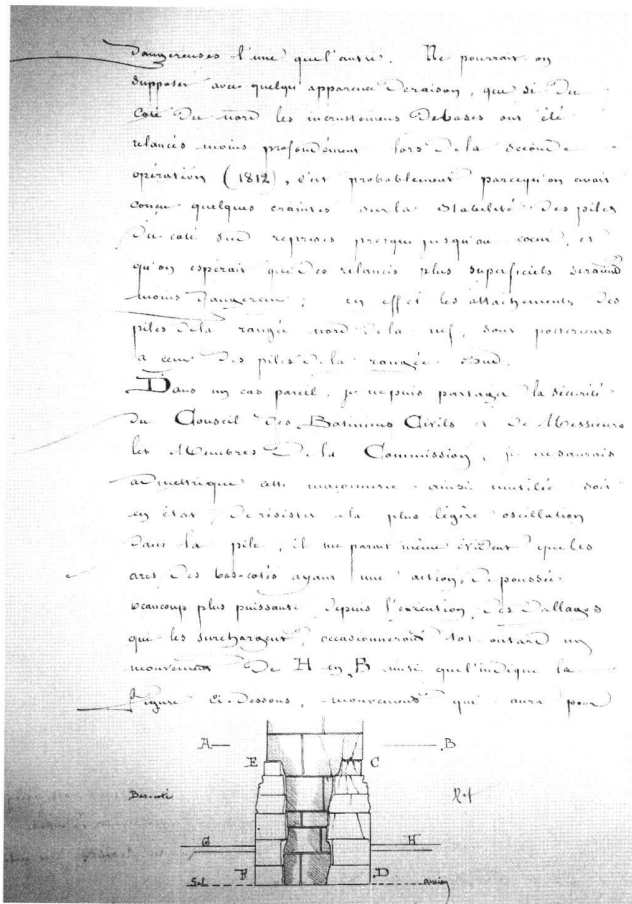 Dangereuses l'une que l'autre. Ne pourrait on
supposer avec quelqu'apparence de raison, que si du
Coté du nord les incrustemens de bases ont été
relancés moins profondément lors de la seconde
opération (1812), c'est probablement parcequ'on avait
conçu quelques craintes sur la Stabilité des piles
du coté sud reprises presque jusqu'au cœur, et
qu'on espérait que des relancis plus superficiels seraient
moins dangereux ; en effet les attachements des
piles de la rangée nord de la nef, sont postérieurs
a ceux des piles de la rangée Sud.
Dans un cas pareil, je ne puis partager la sécurité
du Conseil des Batimens Civils et de Messieurs
les Membres de la Commission, je ne saurais
admettre que cette maçonnerie ainsi mutilée soit
en état de résister a la plus légère oscillation
dans la pile, il me parait même évident que les
arcs des bas-cotés ayant une action de poussée
beaucoup plus puissante depuis l'exécution des dallages
qui les surchargent, occasionneront tot ou tard un
mouvement De H en B ainsi que l'indique la
figure Ci-dessous, mouvement qui aura pour
A B
E C
Bas-coté Nef
G H
F D
Sol ancien